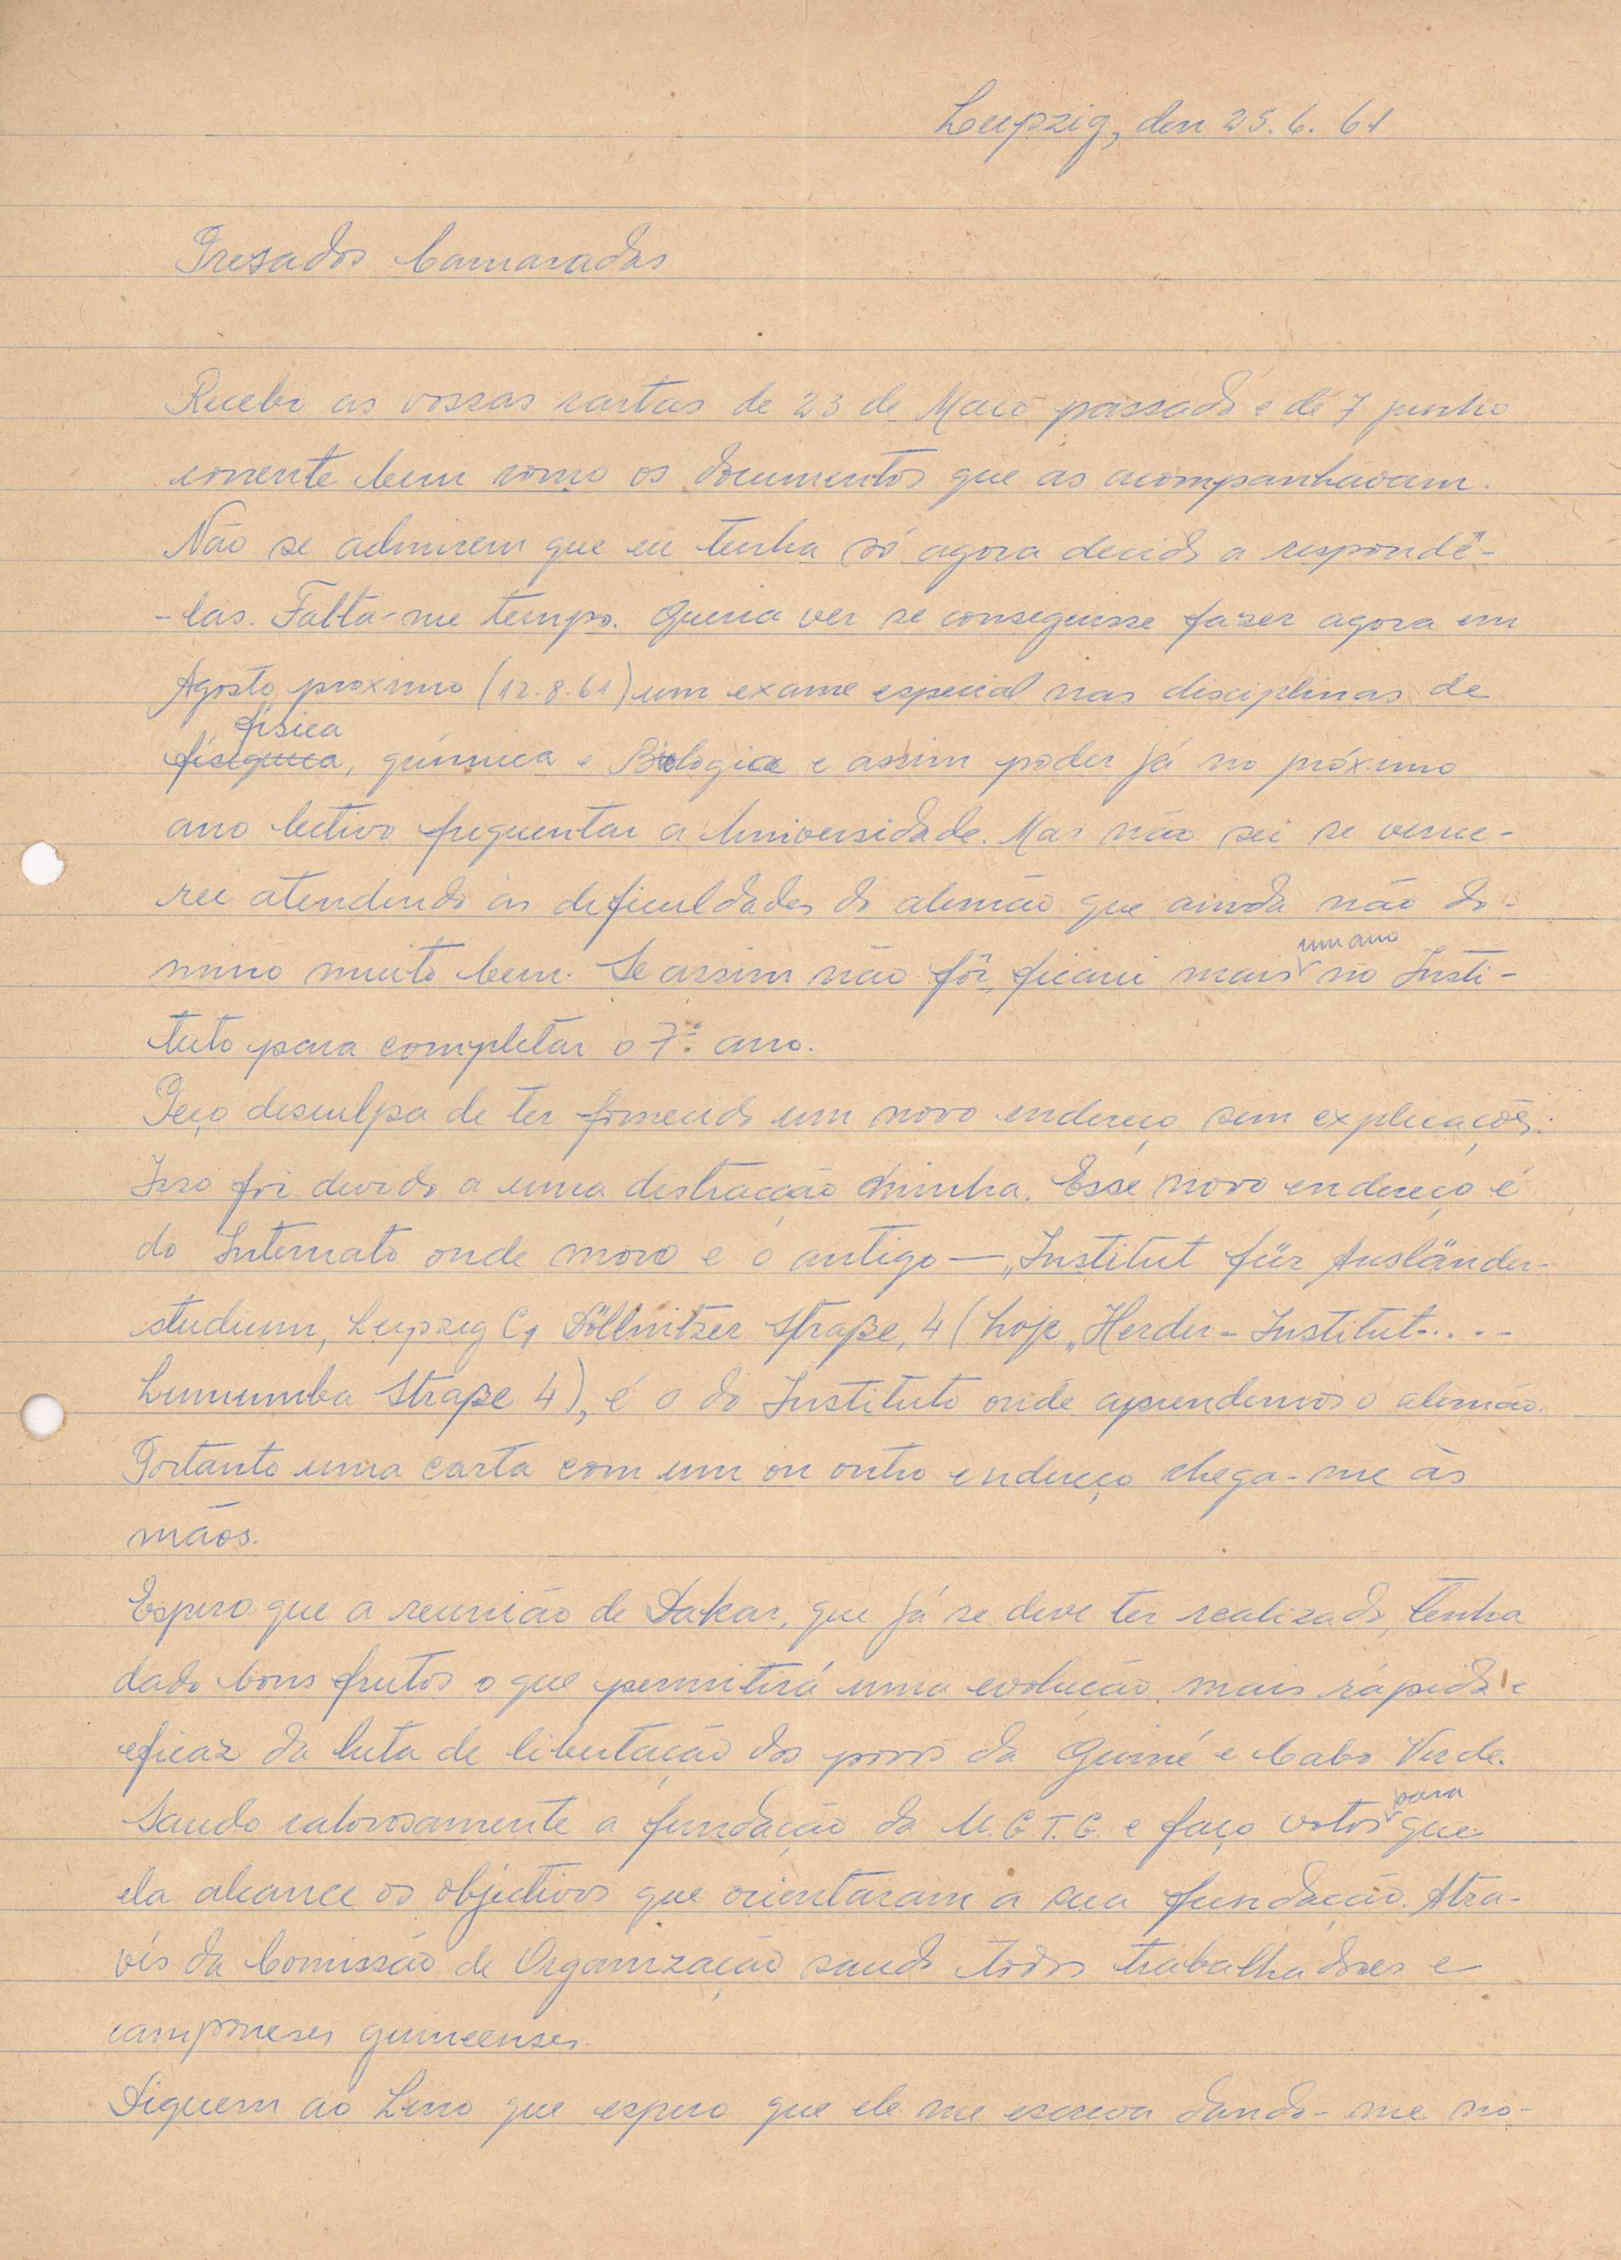 Leipzig, den 25.6.61
Presados Camaradas
Recebi as vossas cartas de 23 de Maio passado e de 7 junho
corrente bem como os documentos que as acompanhavam.
Não se admirem que eu tenha só agora decido a respondê-
-las. Falta-me tempo. Queria ver se conseguisse fazer agora em
Agosto proximo (12.8.61) um exame especial nas disciplinas de
física
, química e Biologia e assim poder já no próximo
ano lectivo frequentar a Universidade. Mas não sei se vence-
rei atendendo às dificuldades do alemão que ainda não do-
mino muito bem. Se assim não fôr, ficarei mais um ano no Insti-
tuto para completar o 7º ano.
Peço desculpa de ter fornecido um novo endereço sem explicações.
Isso foi devido a uma distracção minha. Esse novo endereço é
do Internato onde moro e o antigo — „Institut für Ausländer-
studium, Leipzig C1 Döllnitzer Straße, 4 (hoje „Herder-Institut.....
Lumumba Straße 4), é o do Instituto onde aprendemos o alemão.
Portanto uma carta com um ou outro endereço chega-me às
mãos.
Espero que a reunião de Dakar, que já se deve ter realizado, tenha
dado bons frutos o que permitirá uma evolução mais rápida e
eficaz da luta de libertação dos povos da Guiné e Cabo Verde.
Saudo calorosamente a fundação da U.G.T.G. e faço votos para que
ela alcance os objectivos que orientaram a sua fundação. Atra-
vés da Comissão de Organização saudo todos trabalhadores e
camponeses guineenses.
Diguem ao Lino que espero que ele me escreva dando-me no-